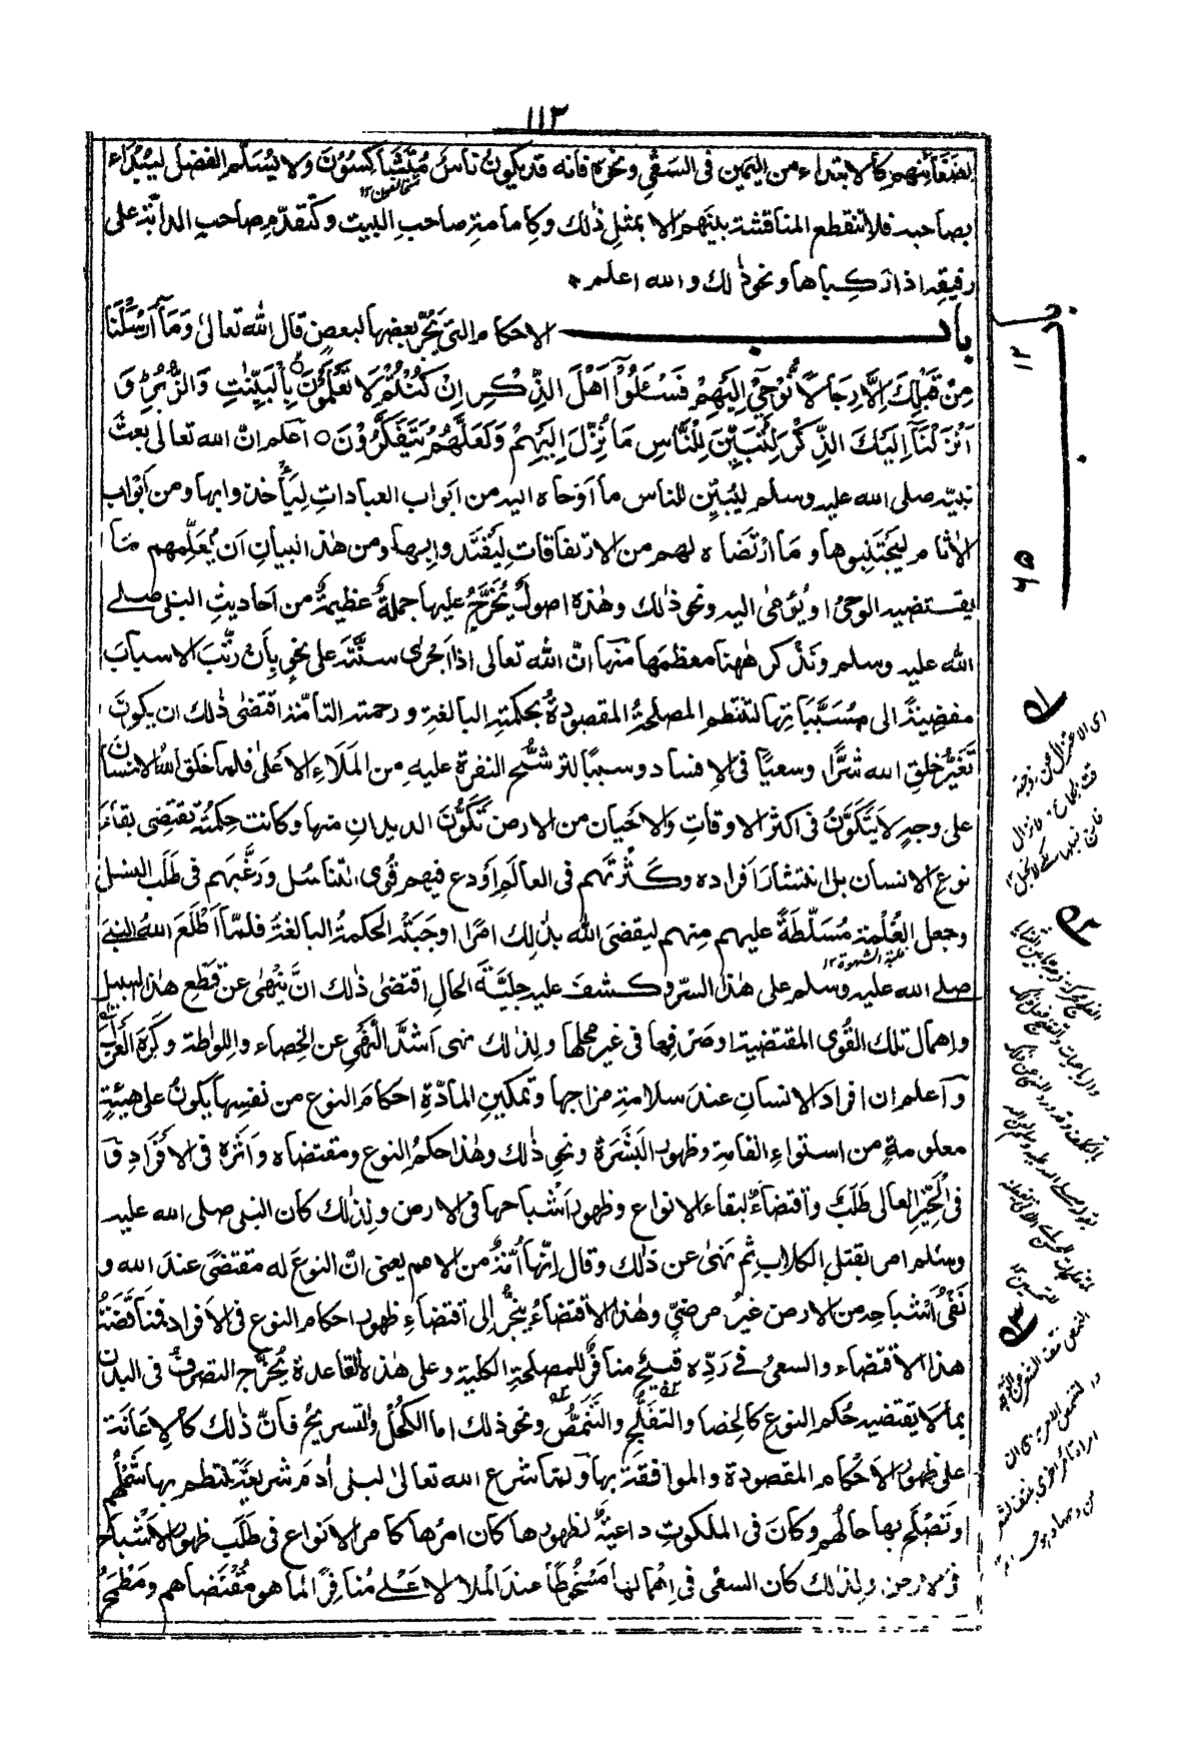 ١١٢
لضغائنهم كالابتداء من اليمين فى السقى ونحوه فانه قد يكون ناس متشاكسون ولا يسلم الفضل ليبداء
بصاحبه فلا تنقطع المناقشة بينهم الا بمثل ذٰلك وكامامة صاحب البيت وكتقدم صاحب الدابة على
رفيقه اذا ركباها ونحو ذٰلك والله اعلم *
باب الاحكام التى يجر بعضها لبعض قال الله تعالىٰ وَمَآ اَرْسَلْنَا
مِنْ قَبْلِكَ اِلَّا رِجَالًا نُّوْحِيْٓ اِلَيْهِمْ فَسْـَٔلُوْٓا اَهْلَ الذِّكْرِ اِنْ كُنْتُمْ لَا تَعْلَمُوْنَ بِالْبَيِّنٰتِ وَالزُّبُرِ وَ
اَنْزَلْنَآ اِلَيْكَ الذِّكْرَ لِتُبَيِّنَ لِلنَّاسِ مَا نُزِّلَ اِلَيْهِمْ وَلَعَلَّهُمْ يَتَفَكَّرُوْنَ ○ اعلم ان الله تعالى بعث
نبيه صلى الله عليه وسلم ليبين للناس ما اوحاه اليه من ابواب العبادات ليأخذوا بها ومن ابواب
الاٰثام ليجتنبوها وما ارتضاه لهم من الارتفاقات ليقتدوا بها ومن هٰذا البيان ان يعلمهم ما
يقتضيه الوحى او يومى اليه ونحو ذٰلك وهٰذه اصول يخرج عليها جملة عظيمة من احاديث النبى صلے
الله عليه وسلم ونذكر هٰهنا معظمها منها ان الله تعالى اذا اجرى سنته على نحو بان رتب الاسباب
مفضية الى مسبباتها لتنتظم المصلحة المقصودة بحكمته البالغة ورحمته التامة اقتضى ذٰلك ان يكون
تغير خلق الله شرا وسعيا فى الافساد وسببا لترشح النفرة عليه من الملاء الاعلى فلما خلق الله الانسان
على وجه لا يتكون فى اكثر الاوقات والاحيان من الارض تكون الديدان منها وكانت حكمته تقتضى بقاء
نوع الانسان بل انتشار افراده وكثرتهم فى العالم اودع فيهم قوى التناسل ورغبهم فى طلب النسل
وجعل الغلمة مسلطة عليهم منهم ليقضى الله بذٰلك امرا اوجبته الحكمة البالغة فلما اطلع الله النبى
غلبة الشهوة ١٢
صلے الله عليه وسلم على هٰذا السر وكشف عليه جلية الحال اقتضى ذٰلك ان ينهى عن قطع هٰذا السبيل
واهمال تلك القوى المقتضية او صرفها فى غير محلها ولذٰلك نهى اشد النهى عن الخصاء واللواطة وكره العزل
واعلم ان افراد الانسان عند سلامة مزاجها وتمكين المادة احكام النوع من نفسها يكون على هيئة
معلومة من استواء القامة وظهور البشرة ونحو ذٰلك وهٰذا حكم النوع ومقتضاه واثره فى الافراد و
فى الحيز العالى طلب واقتضاء لبقاء الانواع وظهور اشباحها فى الارض ولذٰلك كان النبى صلى الله عليه
وسلم امر بقتل الكلاب ثم نهى عن ذٰلك وقال انها امة من الامم يعنى ان النوع له مقتضى عند الله و
نفى اشباحه من الارض غير مرضى وهٰذا الاقتضاء ينجر الى اقتضاء ظهور احكام النوع فى الافراد فمناقضة
هذا الاقتضاء والسعى فے رده قبيح مناف للمصلحة الكلية وعلى هٰذه القاعدة يخرج التصرف فى البدن
بما لا يقتضيه حكم النوع كالخصا والتفلج والتنمص ونحو ذلك اما الكحل والتسريح فان ذٰلك كالاعانة
على ظهور الاحكام المقصودة والموافقة بها ولما شرع الله تعالىٰ لبنى اٰدم شريعة ينتظم بها شملهم
وتصلح بها حالهم وكان فى الملكوت داعية لظهورها كان امرها كامر الانواع فى طلب ظهور الاشباح
فى الارض ولذٰلك كان السعى فى اهمالها مسخوطا عند الملا الاعلے منافرا لما هو مقتضاهم ومطمح